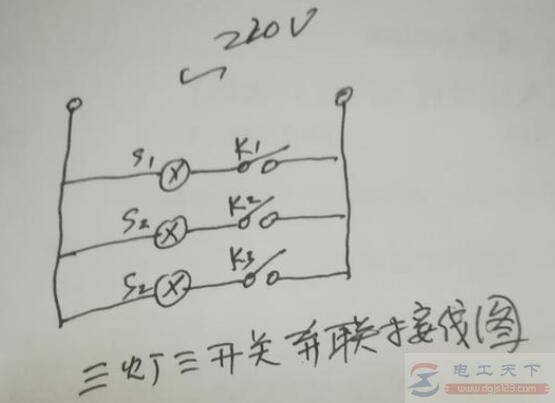 220V
S1 K1
S2 K2
S2 K3
三灯三开关并联接线图
电工天下
www.dgjs123.com